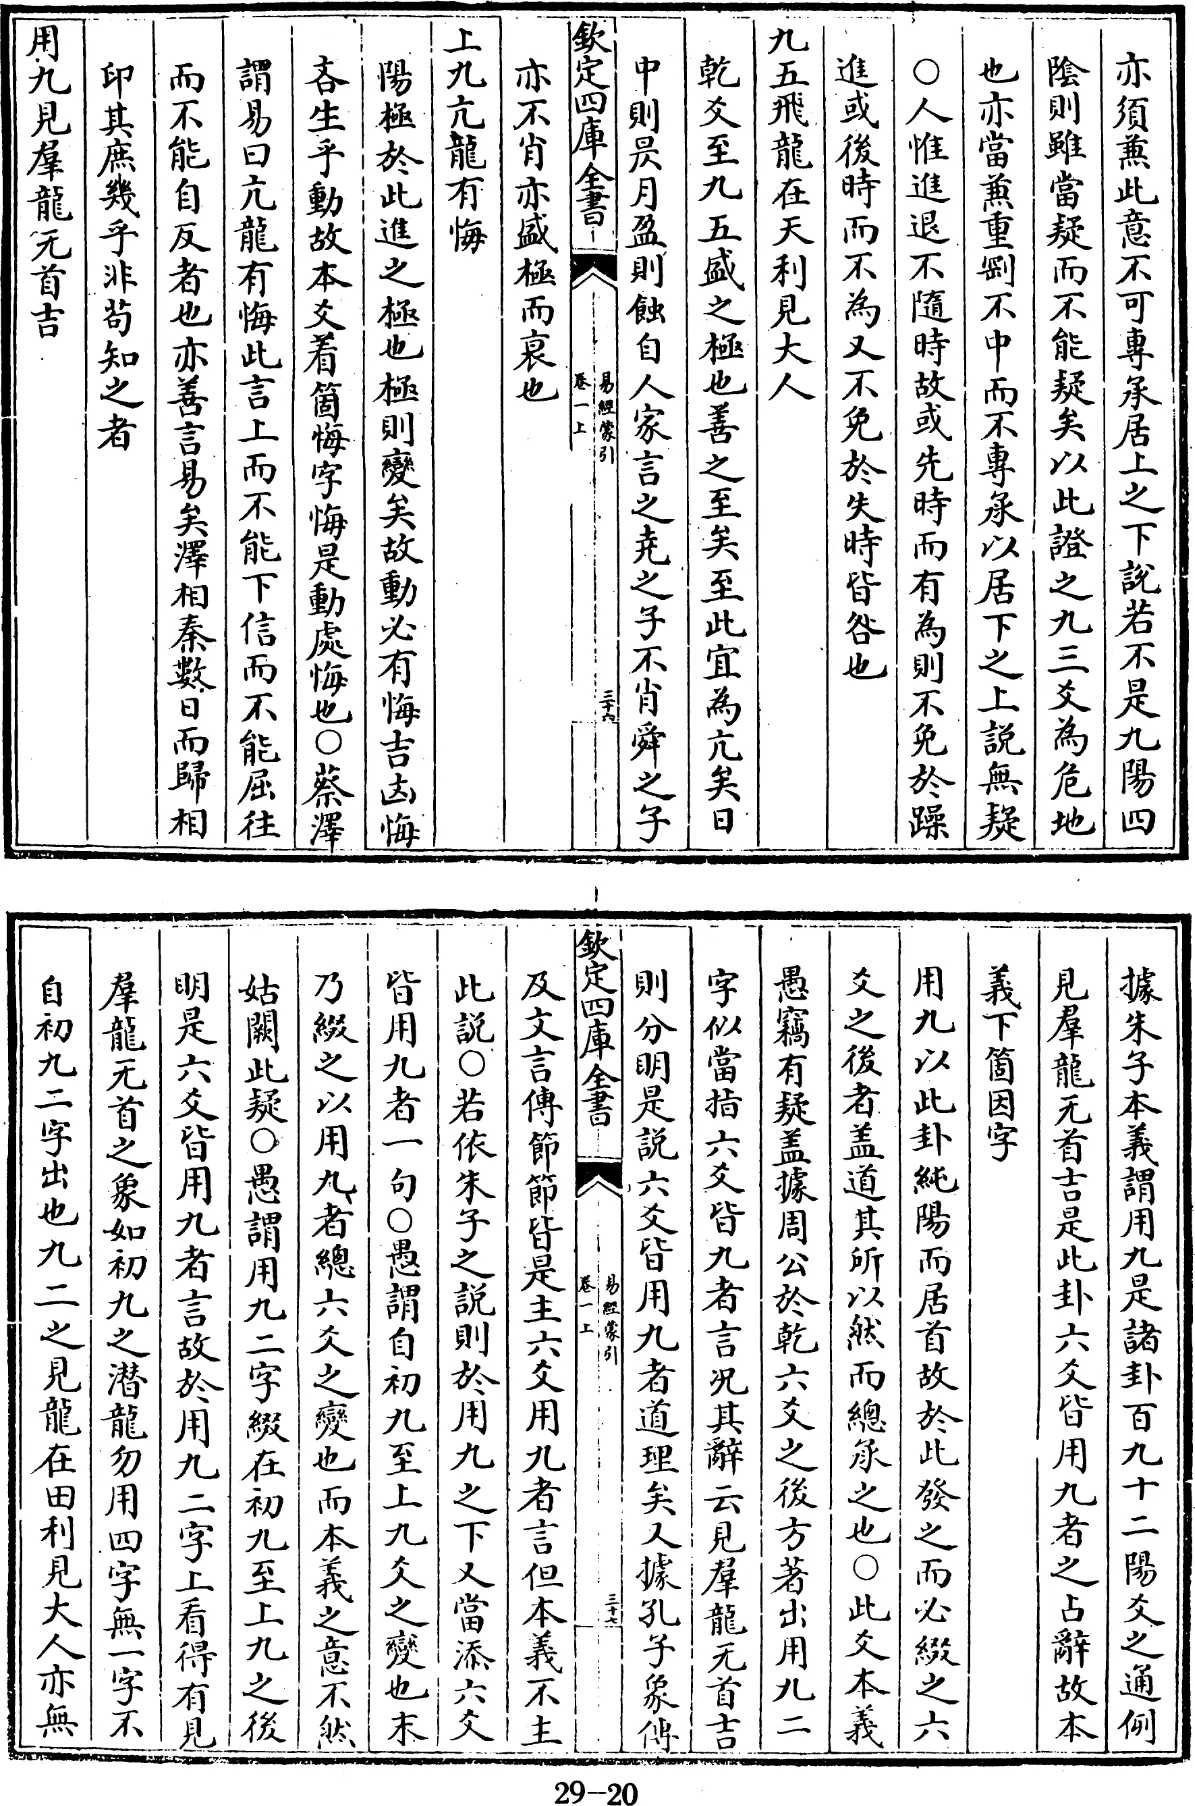 亦須兼此意不可專承居上之下説若不是九陽四
陰則雖當疑而不能疑矣以此證之九三爻為危地
也亦當兼重剛不中而不專承以居下之上説無疑
○人惟進退不隨時故或先時而有為則不免於躁
進或後時而不為又不免於失時皆咎也
九五飛龍在天利見大人
乾爻至九五盛之極也善之至矣至此宜為亢矣日
中則昃月盈則蝕自人家言之堯之子不肖舜之子
欽定四庫全書
易經蒙引
卷一上
三十六
亦不肖亦盛極而衰也
上九亢龍有悔
陽極於此進之極也極則變矣故動必有悔吉凶悔
吝生乎動故本爻着箇悔字悔是動處悔也○蔡澤
謂易曰亢龍有悔此言上而不能下信而不能屈往
而不能自反者也亦善言易矣澤相秦數日而歸相
印其庶幾乎非苟知之者
用九見羣龍无首吉
據朱子本義謂用九是諸卦百九十二陽爻之通例
見羣龍无首吉是此卦六爻皆用九者之占辭故本
義下箇因字
用九以此卦純陽而居首故於此發之而必綴之六
爻之後者蓋道其所以然而總承之也○此爻本義
愚竊有疑蓋據周公於乾六爻之後方著出用九二
字似當指六爻皆九者言況其辭云見羣龍无首吉
則分明是説六爻皆用九者道理矣又據孔子象傳
欽定四庫全書
易經蒙引
卷一上
三十七
及文言傳節節皆是主六爻用九者言但本義不主
此説○若依朱子之説則於用九之下又當添六爻
皆用九者一句○愚謂自初九至上九爻之變也末
乃綴之以用九者總六爻之變也而本義之意不然
姑闕此疑○愚謂用九二字綴在初九至上九之後
明是六爻皆用九者言故於用九二字上看得有見
羣龍无首之象如初九之潜龍勿用四字無一字不
自初九二字出也九二之見龍在田利見大人亦無
29-20